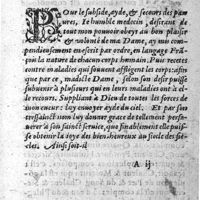 POur le subside, ayde, & secours des pau
ures, Ie humble medecin, desirant de
tout mon pouoir obeyr au bon plaisir
& volonté de ma Dame, ay mis com-
pendieusement en escrit par ordre, en langage Frã-
çois la nature de chacun corps humain. Puis receptes
contre maladies qui souuent affligent les corps: afin
que par ce, madicte Dame, selon son desir puisse
subuenir à plusieurs qui en leurs maladies ont à el-
le recours. Suppliant à Dieu de toutes les forces de
mon cueur luy enuoyer ayde du ciel. Et par son
tressainct nom luy donner grace de tellement perse-
uerer à son sainct seruice, que finablement elle puis-
se obtenir la ioye des bien-heureux au siecle des sie-
cles. Ainsi soit-il
A ij